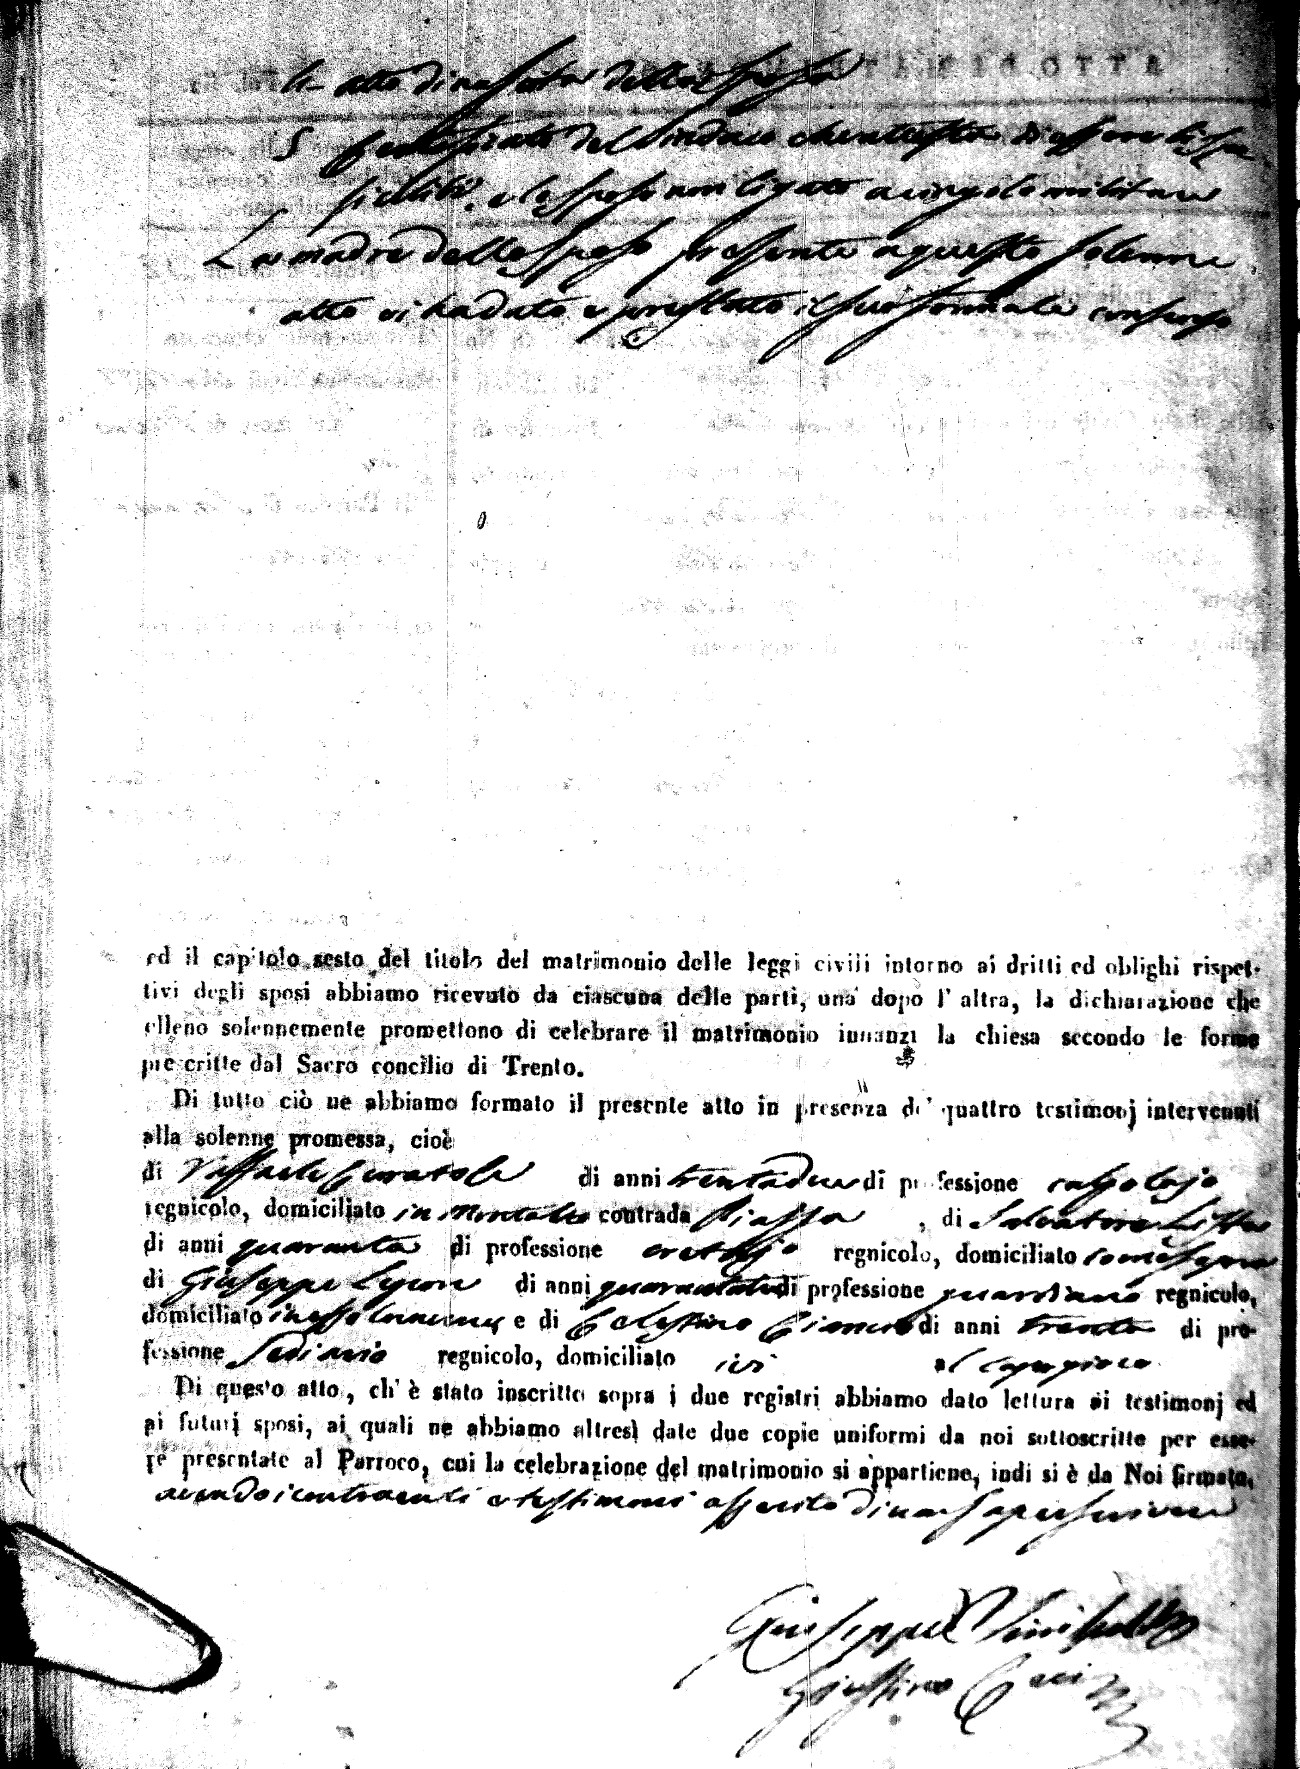 4- atto di nascita della sposa
5 Certificato del Sindaco che attesta di essere
e lo sposo non ligato a cingolo militare
La madre dello sposo presente a questo solenne
atto vi ha dato e prestato il suo formale consenso
ed il capitolo sesto del titolo del matrimonio delle leggi civili intorno ai dritti ed oblighi rispet-
tivi degli sposi abbiamo ricevuto da ciascuna delle parti, una dopo l' altra, la dichiarazione che
elleno solennemente promettono di celebrare il matrimonio innanzi la chiesa secondo le forme
prescritte dal Sacro concilio di Trento.
Di tutto ciò ne abbiamo formato il presente atto in presenza de' quattro testimonj intervenuti
alla solenne promessa, cioè
di Raffaele di anni trentadue di professione calzolajo
regnicolo, domiciliato in contrada Piazza , di Salvatore
di anni quaranta di professione regnicolo, domiciliato come sopra
di Giuseppe di anni di professione guardiano regnicolo,
domiciliato e di Celestino di anni trenta di pro-
fessione Sediario regnicolo, domiciliato ivi
Di questo atto, ch' è stato inscritto sopra i due registri abbiamo dato lettura ai testimonj ed
ai futuri sposi, ai quali ne abbiamo altresì date due copie uniformi da noi sottoscritte per esse-
re presentate al Parroco, cui la celebrazione del matrimonio si appartiene, indi si è da Noi firmato,
avendo i contraenti e testimoni asserito di non saper scrivere
Giuseppe
Giustino